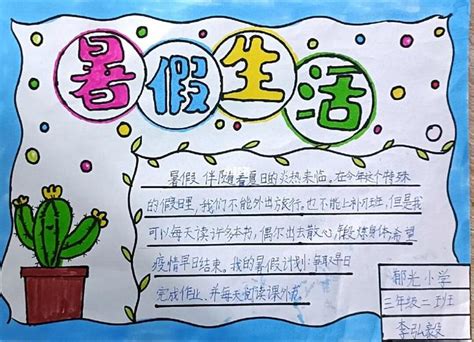 暑假生活
暑假伴随着夏日的炎热来临。在今年这个特殊
的假日里，我们不能外出旅行，也不能上补习班，但是我
可以每天读许多本书，偶尔出去散心，锻炼身体希望
疫情早日结束。我的暑假计划：争取早日
完成作业、并每天阅读课外书
郡光小学
三年级二班班
李弘毅